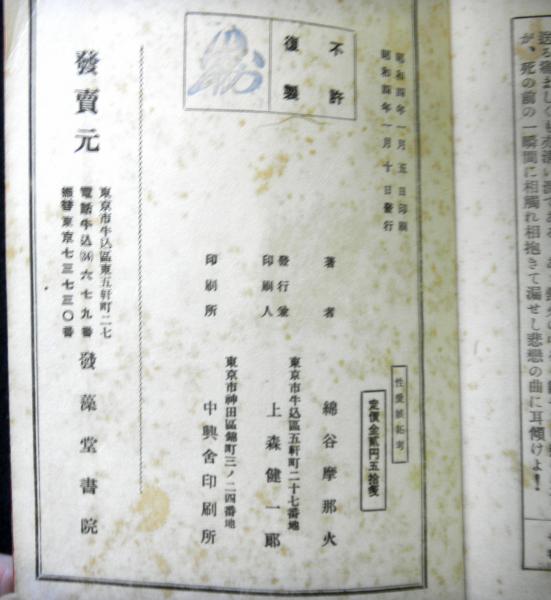 が、死の前の一瞬間に相觸れ相抱きて漏せし悲戀の曲に耳傾けよ！
不許
復製
昭和四年一月五日印刷
昭和四年一月十日發行
定價金貳円五拾錢
著者 綿谷摩那火
東京市牛込區五軒町二十七番地
發行兼
印刷人 上森健一郎
東京市神田區錦町三ノ二四番地
印刷所 中興舍印刷所
東京市牛込區東五軒町二七
電話牛込(34)六七九番
振替東京七三七三〇番
發賣元 發藻堂書院